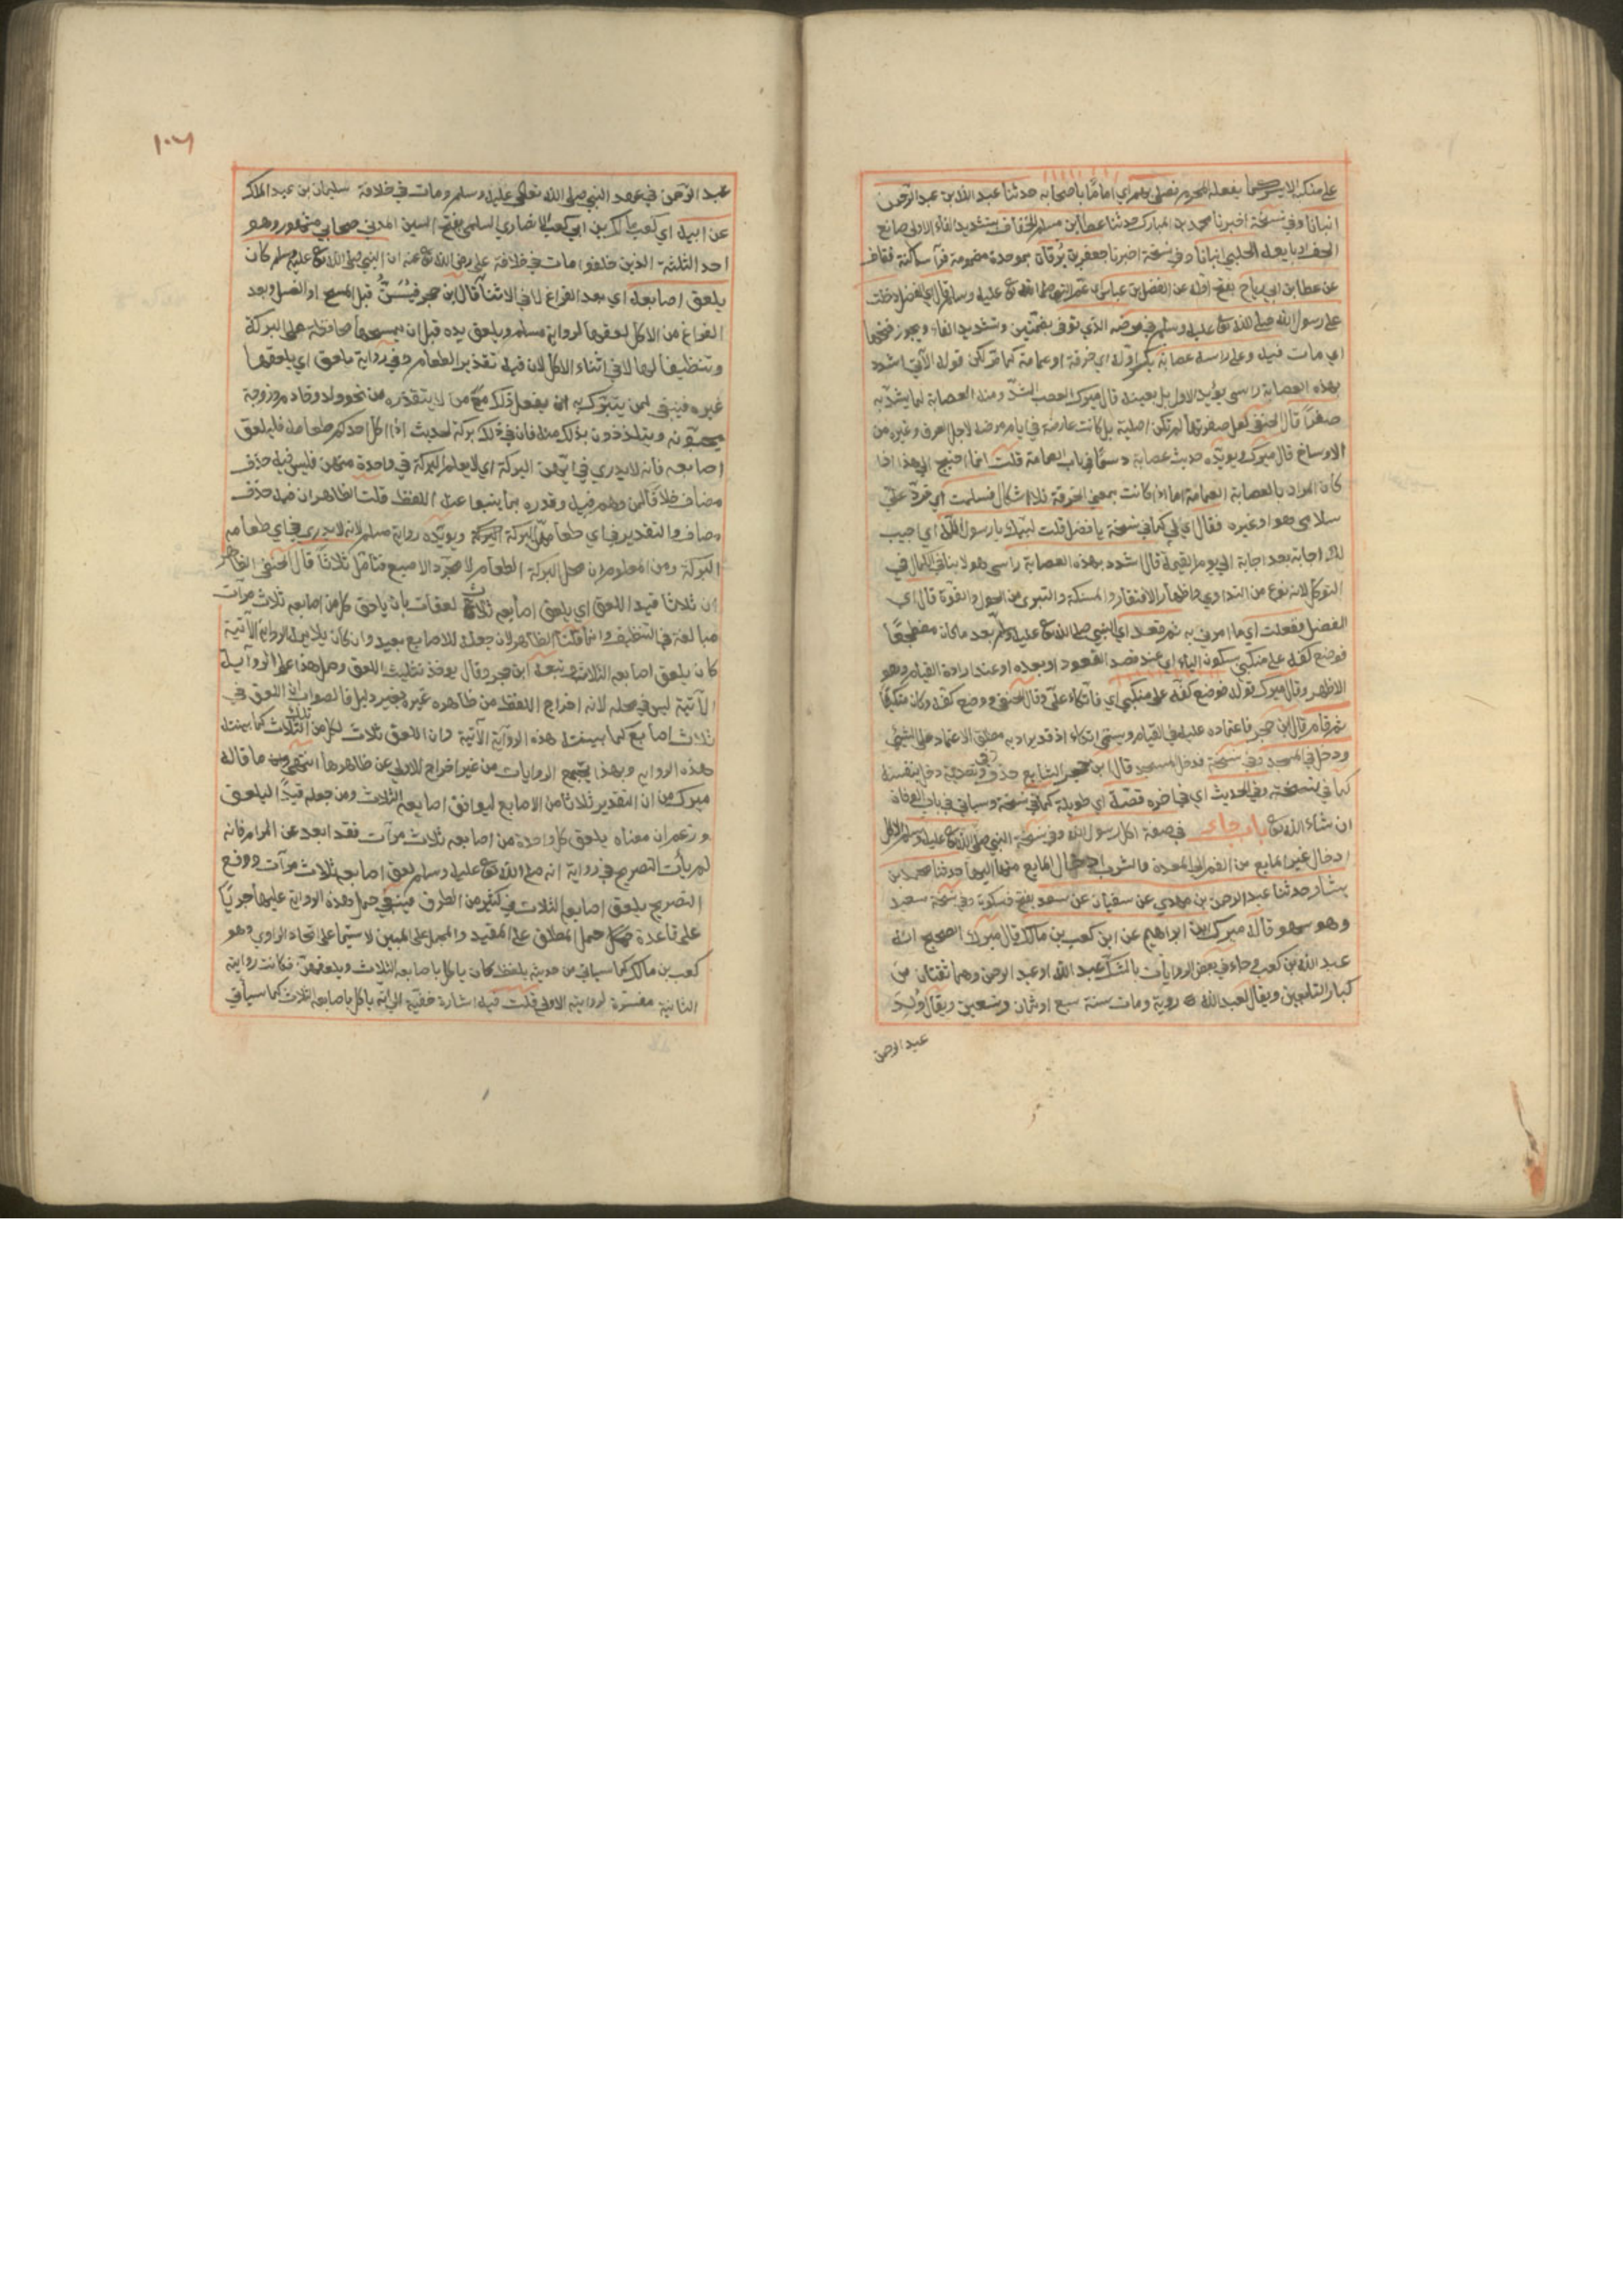 على منكبه الايسر كما يفعله المحرم فصلى بهم اي اماما باصحابه حدثنا عبد الله بن عبد الرحمن
انبانا وفي نسخة اخبرنا محمد بن المبارك حدثنا عطا بن مسلم الخفاف بتشديد الفاء الاولى صانع
الخف او بايعه الحلبي انبانا وفي نسخة اخبرنا جعفر بن برقان بموحدة مضمومة فرآ ساكنة فقاف
عن عطا بن ابي رباح بفتح اوله عن الفضل بن عباس اي عم النبي صلى الله تع عليه وسلم قال اي الفضل دخلت
على رسول الله صلى الله تع عليه وسلم في مرضه الذي توفى بضمتين وتشديد الفاء ويجوز فتحها
اي مات فيه وعلى راسه عصابة بكسر اوله اي خرقة او عمامة كما مر لكن قوله الآتي اشدد
بهذه العصابة راسي يؤيد الاول بل يعينه قال ميرك العصب الشد ومنه العصابة لما يشد به
صفرا قال الحنفي لعل صفرتها لم تكن اصلية بل كانت عارضة في ايام مرضه لاجل العرق وغيره من
الاوساخ قال ميرك ويويده حديث عصابة دسما في باب العمامة قلت انما احتيج الى هذا اذا
كان المراد بالعصابة العمامة اما اذا كانت بمعنى الخرقة فلا اشكال فسلمت اي فرد علي
سلامي هو او غيره فقال اي لي كما في نسخة يا فضل قلت لبيك يا رسول الله اي اجيب
لك اجابة بعد اجابة الى يوم القيمة قال اشدد بهذه العصابة راسي هو لا ينافي الكمال في
التوكل لانه نوع من التداوي واظهار الافتقار والمسكنة والتبرى من الحول والقوة قال اي
الفضل ففعلت اي ما امرني به ثم قعد اي النبي صلى الله تع عليه وسلم بعد ما كان مضطجعا
فوضع كفه على منكبي بسكون الياء اي عند قصد القعود او بعده او عند ارادة القيام وهو
الاظهر وقال ميرك قوله فوضع كفه على منكبي اي فاتكاء علي وقال الحنفي ووضع كفه وكان متكيا
ثم قام قال ابن حجر فاعتماده عليه في القيام ويسمى اتكاء اذ قد يراد به مطلق الاعتماد على الشئ
ودخل في المسجد وفي نسخة فدخل المسجد قال ابن حجر الشايع حذف في وتعدية دخل بنفسه
كما في نسخة وفي الحديث اي في اخره قصة اي طويلة كما في نسخة وسياتي في باب الوفاة
ان شاء الله تع باب جاء في صفة اكل رسول الله وفي نسخة النبي صلى الله تع عليه وسلم الاكل
ادخال غير المايع من الفم الى المعدة والشرب ادخال المايع منها اليها حدثنا محمد بن
بشار حدثنا عبد الرحمن بن مهدي عن سفيان عن سعد بفتح فسكون وفي نسخة سعيد
وهو سهو قاله ميرك ابن ابراهيم عن ابن كعب بن مالك قال ميرك الصحيح انه
عبد الله بن كعب وجاء في بعض الروايات بالشك عبد الله او عبد الرحمن وهما ثقتان من
كبار التابعين ويقال لعبد الله روية ومات سنة سبع او ثمان وتسعين ويقال ولد
عبد الرحمن
١٠٦
عبد الرحمن في عهد النبي صلى الله تعالى عليه وسلم ومات في خلافة سليمان بن عبد الملك
عن ابيه اي كعب بن مالك بن ابي كعب الانصاري السلمي بفتح السين المدني صحابي مشهور وهو
احد الثلثة الذين خلفوا مات في خلافة علي رضى الله تع عنه ان النبي صلى الله تع عليه وسلم كان
يلعق اصابعه اي بعد الفراغ لا في الاثنا قال ابن حجر فيسن قبل المسح او الغسل وبعد
الفراغ من الاكل لعقها لرواية مسلم ويلعق يده قبل ان يمسحها محافظة على البركة
وتنظيفا لها لا في اثناء الاكل لان فيه تقذير الطعام وفي رواية يلعق اي يلعقها
غيره فينبغي لمن يتبرك به ان يفعل ذلك مع من لا يتقذره من نحو ولد وخادم وزوجة
يحبونه ويتلذذون بذلك منه فان في ذلك بركة لحديث اذا اكل احدكم طعامه فليلعق
اصابعه فانه لا يدري في ايتهن البركة اي لا يعلم البركة في واحدة منهن فليس فيه حذف
مضاف خلافا لمن وهم فيه وقدره بما ينبوا عنه اللفظ قلت الظاهر ان فيه حذف
مضاف والتقدير في اي طعامهن البركة ويويده رواية مسلم لانه لا يدري في اي طعامه
البركة ومن المعلوم ان محل البركة الطعام لا مجرد الاصبع فتامل ثلاثا قال الحنفي الظاهر
ان ثلاثا قيد اللعق اي يلعق اصابعه ثلاث لعقات بان يلحق كل من اصابعه ثلاث مرات
مبالغة في التنظيف وانما قلنا الظاهر لان جعله للاصابع بعيد وان كان يلايمه الرواية الآتية
كان يلعق اصابعه الثلاث وتبعه ابن حجر وقال يوخذ تثليث اللعق وحمل هذا على الرواية
الآتية ليس في محله لانه اخراج اللفظ من ظاهره غيره بغير دليل فالصواب ان اللعق في
ثلاث اصابع كما بينته هذه الرواية الآتية وان اللعق ثلاث لكل من الثلاث كما بينته
هذه الرواية وبهذا يجتمع الروايات من غير اخراج للاولى عن ظاهرها انتهى ما قاله
ميرك من ان التقدير ثلاثا من الاصابع ليوافق اصابعه الثلاث ومن جعله قيدا ليلعق
وزعم ان معناه يلعق كل واحدة من اصابعه ثلاث مرآت فقد ابعد عن المرام فانه
لم يأت التصريح في رواية انه صلى الله تع عليه وسلم لعق اصابعه ثلاث مرآت ووقع
التصريح بلعق اصابعه الثلاث في كثير من الطرق فينبغي حمل هذه الرواية عليها جريا
على قاعدة حمل المطلق على المقيد والمجمل على المبين لا سيما على اتحاد الراوي وهو
كعب بن مالك كما سياتي من حديثه بلفظ كان ياكل باصابعه الثلاث ويلعقهن فكانت روايته
الثانية مفسرة لروايته الاولى قلت فيه اشارة خفية الى انه ياكل باصابعه الثلاث كما سيأتي